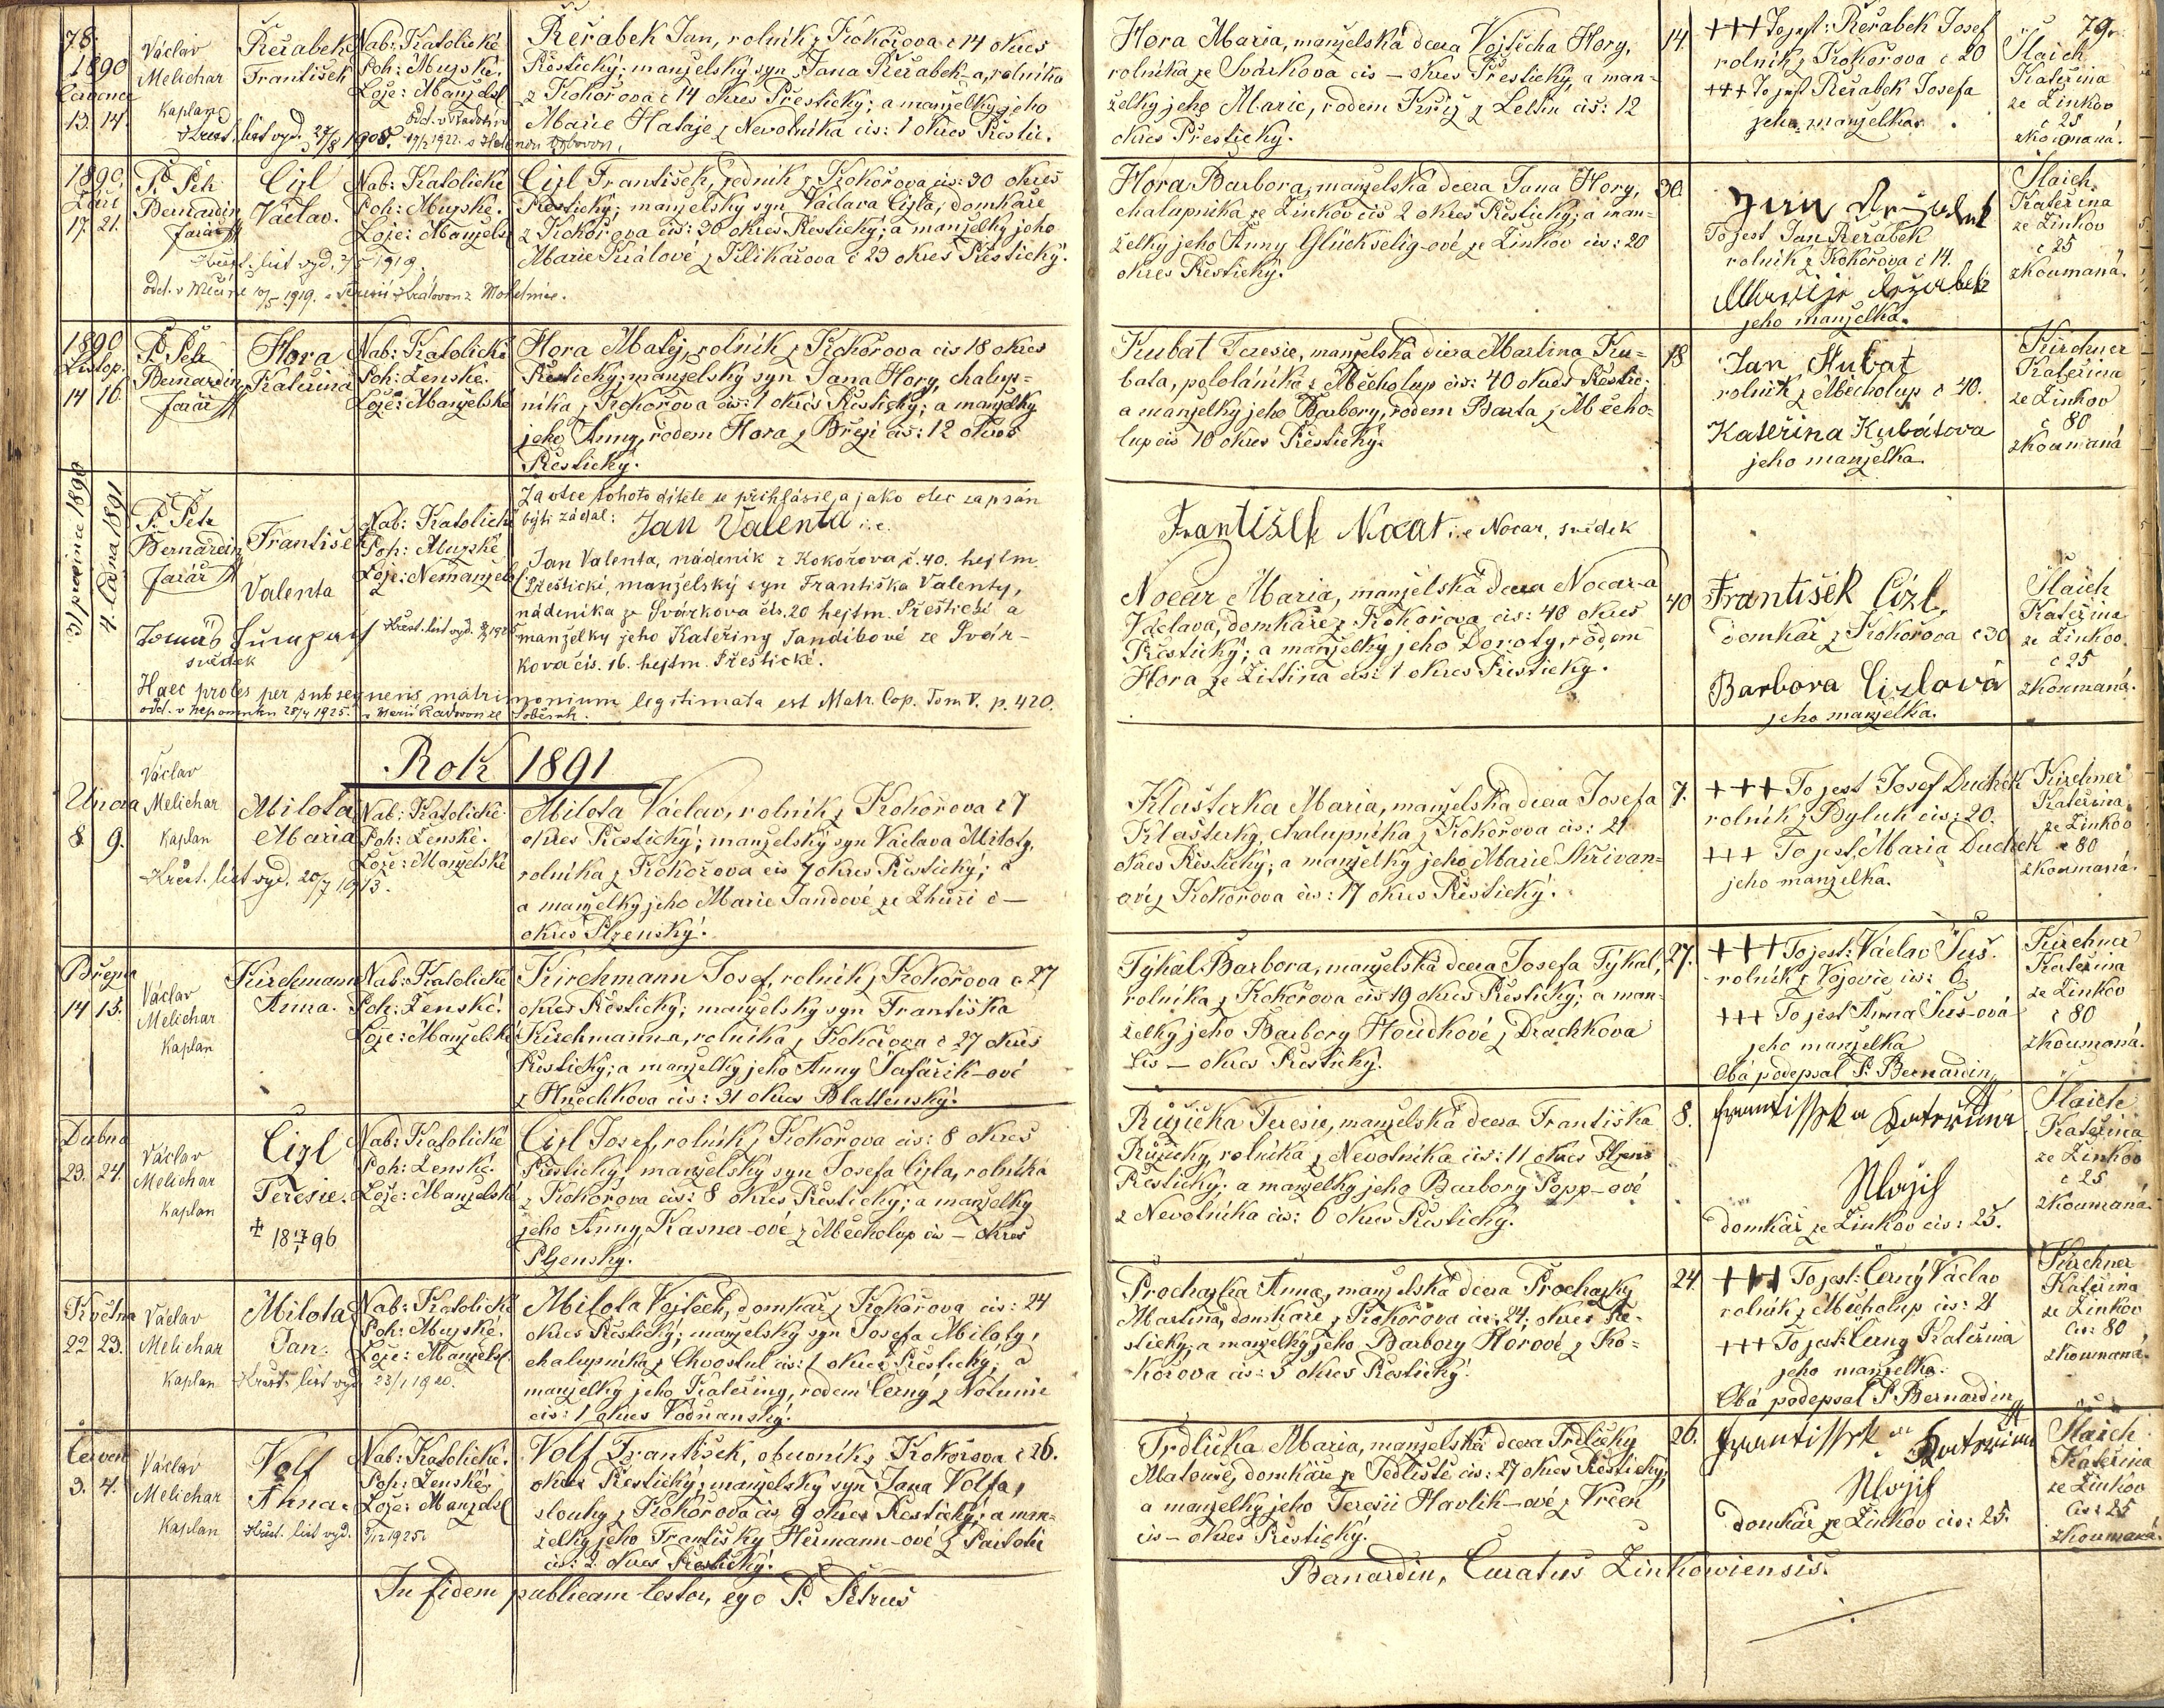 78.
1890
Července
13. 14.
Václav
Melichar
Kaplan
Řeřabek
František
Nab: Katolické
Poh: Mužské.
Lože: Manžels
Křest. list vyd. 27/8 1908.
Řeřabek Jan, rolník z Kokořova č 14 okres
Přestický; manželský syn Jana Řeřabek-a, rolníka
z Kokořova č 14 okres Přestický; a manželky jeho
Marie Hataje z Nevolníka čís: 1 okres Přestic.
1890
Září
17. 21.
P. Petr
Bernardin
farář
Cizl
Václav.
Nab: Katolické
Poh: Mužské.
Lože: Manžels
Cizl František, zedník z Kokořova čís: 30 okres
Přestický; manželský syn Václava Cizla, domkáře
z Kokořova čís: 30 okres Přestický; a manželky jeho
Marie Králové z Pilikařova č 29 okres Přestický.
Křest. list vyd. 1919.
1890
Listop.
14 16.
P. Petr
Bernardin
farář
Hora
Kateřina
Nab: Katolické
Poh: Ženské.
Lože: Manželské
Hora Matěj, rolník z Kokořova čís 18 okres
Přestický; manželský syn Jana Hory, chalup=
níka z Kokořova čís: 1 okres Přestický; a manželky
jeho Anny, rodem Hora z Březí čís: 12 okres
Přestický.
31 prosince 1890
4. ledna 1891
P. Petr
Bernardin
farář
František
Valenta
Nab: Katolické
Poh: Mužské
Lože: Nemanžels
Za otce tohoto dítěte se přihlásil a jako otec zapsán
býti žádal: Jan Valenta i.e.
Jan Valenta, nádeník z Kokořova č. 40. hejtm.
Přestické, manželský syn Františka Valenty,
nádeníka ze Svárkova čís. 20 hejtm. Přestické a
manželky jeho Kateřiny Tandibové ze Svár-
kova čís. 16. hejtm. Přestické.
Tomáš
svědek
Křest. list vyd.
Haec proles per subsequens matrimonium legitimata est Matr. Cop. Tom V. p. 420.
Rok 1891
Února
8 9.
Václav
Melichar
Kaplan
Milota
Maria
Nab: Katolické
Poh: Ženské.
Lože: Manželské
Křest. list vyd. 20/7 1913.
Milota Václav, rolník z Kokořova č 7
okres Přestický; manželský syn Václava Miloty,
rolníka z Kokořova čís 7 okres Přestický; a
a manželky jeho Marie Jandové ze Lhúři č —
okres Plzenský.
Března
14 15.
Václav
Melichar
Kaplan
Kirchmann
Anna.
Nab: Katolické
Poh: Ženské.
Lože: Manželské
Kirchmann Josef, rolník z Kokořova č 27
okres Přestický; manželský syn Františka
Kirchmann-a, rolníka z Kokořova č 27 okres
Přestický; a manželky jeho Anny Šafařík-ové
z Hněchkova čís: 31 okres Blattenský.
Dubna
23. 24.
Václav
Melichar
Kaplan
Cizl
Teresie.
Nab: Katolické
Poh: Ženské.
Lože: Manželské
Cizl Josef, rolník z Kokořova čís: 8 okres
Přestický; manželský syn Josefa Cizla, rolníka
z Kokořova čís: 8 okres Přestický; a manželky
jeho Anny, Kasna-ové z Měcholup čís — okres
Plzenský.
Května
22 23.
Václav
Melichar
Kaplan
Milota
Jan.
Nab: Katolické
Poh: Mužské.
Lože: Manžels.
Křest. list vyd. 23/1 1920.
Milota Vojtěch, domkář z Kokořova čís: 24
okres Přestický; manželský syn Josefa Miloty,
chalupníka z Chvostul čís: 1 okres Přestický; a
manželky jeho Kateřiny, rodem Černý z Notunie
čís: 1 okres Vodňanský.
Červen
3. 4.
Václav
Melichar
Kaplan
Volf
Anna.
Nab: Katolické.
Poh: Ženské.
Lože: Manžels
Křest. list vyd. 1925.
Volf František, obuvník z Kokořova č 26.
okres Přestický; manželský syn Jana Volfa,
slouhy z Kokořova čís 9 okres Přestický; a man=
želky jeho Františky Hermann-ové z
čís: 2 okres Přestický.
In fidem publicam testor, ego P. Petrus
79.
Hora Maria, manželská dcera Vojtěcha Hory,
rolníka ze Svárkova čís — okres Přestický, a man=
želky jeho Marie, rodem Kříž z Letin čís: 12
okres Přestický.
14.
+++ To jest: Řeřabek Josef
rolník z Kokořova č 20
+++ To jest Řeřabek Josefa
jeho manželka.
Šlaich
Kateřina
ze Žinkov
č 25
zkoumaná.
Hora Barbora, manželská dcera Jana Hory,
chalupníka ze Žinkov čís 2 okres Přestický; a man=
želky jeho Anny Glückselig-ové ze Žinkov čís: 20
okres Přestický.
30.
Jan Řeřabek
To jest Jan Řeřabek
rolník z Kokořova č 14.
Marije Řeřabek
jeho manželka.
Šlaich
Kateřina
ze Žinkov
č 25
zkoumaná.
Kubat Teresie, manželská dcera Martina Ku=
bata, pololáníka z Měcholup čís: 40 okres Přestic:
a manželky jeho Barbory, rodem Barta z Měcho=
lup čís 10 okres Přestický.
18
Jan Kubat
rolník z Měcholup č 40.
Kateřina Kubátova
jeho manželka
Kirchner
Kateřina
ze Žinkov
č 80
zkoumaná
František Nocar i.e. Nocar, svědek
Nocar Maria, manželská dcera Nocar-a
Václava, domkáře z Kokořova čís: 40 okres
Přestický; a manželky jeho Doroty, rodem
Hora ze Žittina čís: 1 okres Přestický.
40
František Cízl,
domkář z Kokořova č 30
Barbora Cizlová
jeho manželka.
Šlaich
Kateřina
ze Žinkov
č 25
zkoumaná.
Klašterka Maria, manželská dcera Josefa
Klašterky, chalupníka z Kokořova čís: 21
okres Přestický; a manželky jeho Marie Skřivan=
ové z Kokořova čís: 17 okres Přestický.
7.
+++ To jest Josef Duchek
rolník z Byluk čís: 20.
+++ To jest, Maria Duchek
jeho manželka.
Kirchner
Kateřina
ze Žinkov
č 80
zkoumaná.
Týkal Barbora, manželská dcera Josefa Týkal,
rolníka z Kokořova čís 19 okres Přestický; a man=
želky jeho Barbory Houdkové z Drachkova
čís — okres Přestický.
27.
+++ To jest: Václav Šuš.
rolník z Vojovic čís: 6
+++ To jest Anna Šuš-ová
jeho manželka
Oba podepsal P. Bernardin
Kirchner
Kateřina
ze Žinkov
č 80
zkoumaná.
Růžička Teresie, manželská dcera Františka
Růžičky, rolníka z Nevolníka čís: 11 okres
Přestický. a manželky jeho Barbory Popp-ové
z Nevolníka čís: 6 okres Přestický.
8.
Frantissek a Kateřina
Šlajch
domkář ze Žinkov čís: 25.
Šlaich
Kateřina
ze Žinkov
č 25
zkoumaná.
Prochazka Anna, manželská dcera Prochazky
Martina, domkáře z Kokořova čís: 24; okres Pře=
stický; a manželky jeho Barbory Horové z Ko=
kořova čís: 5 okres Přestický.
24
+++ To jest: Černý Václav
rolník z Měcholup čís: 21
+++ To jest: Černy Kateřina
jeho manželka.
Oba podepsal P. Bernardin
Kirchner
Kateřina
ze Žinkov
čís: 80
zkoumaná.
Trdlicka Maria, manželská dcera Trdlicky
Matouše, domkáře ze Sedliště čís: 27 okres Přestický;
a manželky jeho Teresii Havlik-ové z Vrčen
čís — okres Přestický.
26.
Frantissek a Kateřina
Šlajch
domkář ze Žinkov čís: 25.
Šlaich
Kateřina
ze Žinkov
čís: 25
zkoumaná.
Bernardin, Curatus Zinkowiensis.